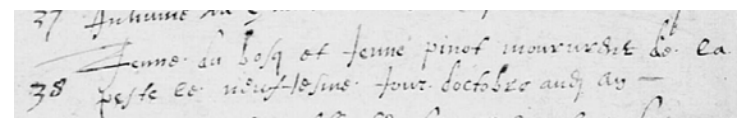 37 Anthoine du
Jenne du bosq et Jenne pinot moururent de la
38 peste le neufiesme Jour doctobre aud an